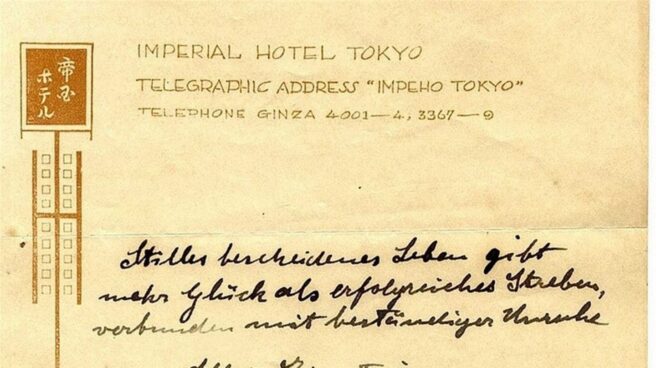 帝国
ホテル
IMPERIAL HOTEL TOKYO
TELEGRAPHIC ADDRESS "IMPEHO TOKYO"
TELEPHONE GINZA 4001—4, 3367—9
Stilles bescheidenes Leben gibt
mehr Glück als erfolgreiches Streben,
verbunden mit beständiger Unruhe